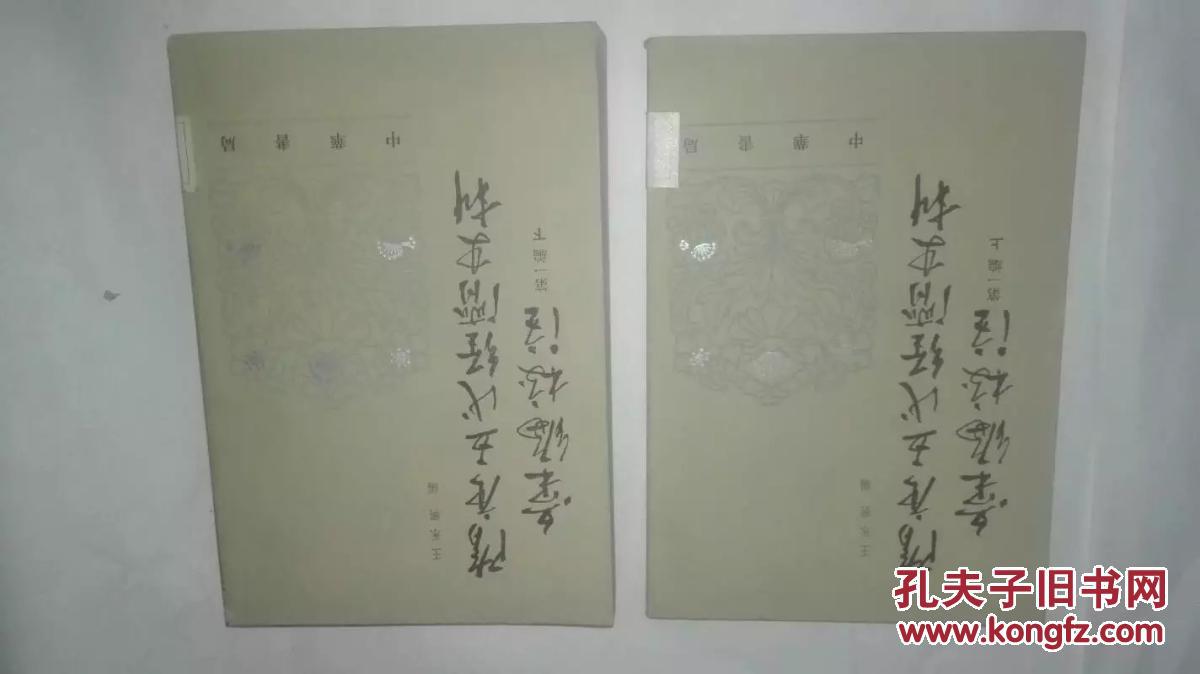 王永興 編
隋唐五代經濟史料
彙編校注
第一編 上
中華書局
王永興 編
隋唐五代經濟史料
彙編校注
第一編 下
中華書局
孔夫子旧书网
www.kongfz.com